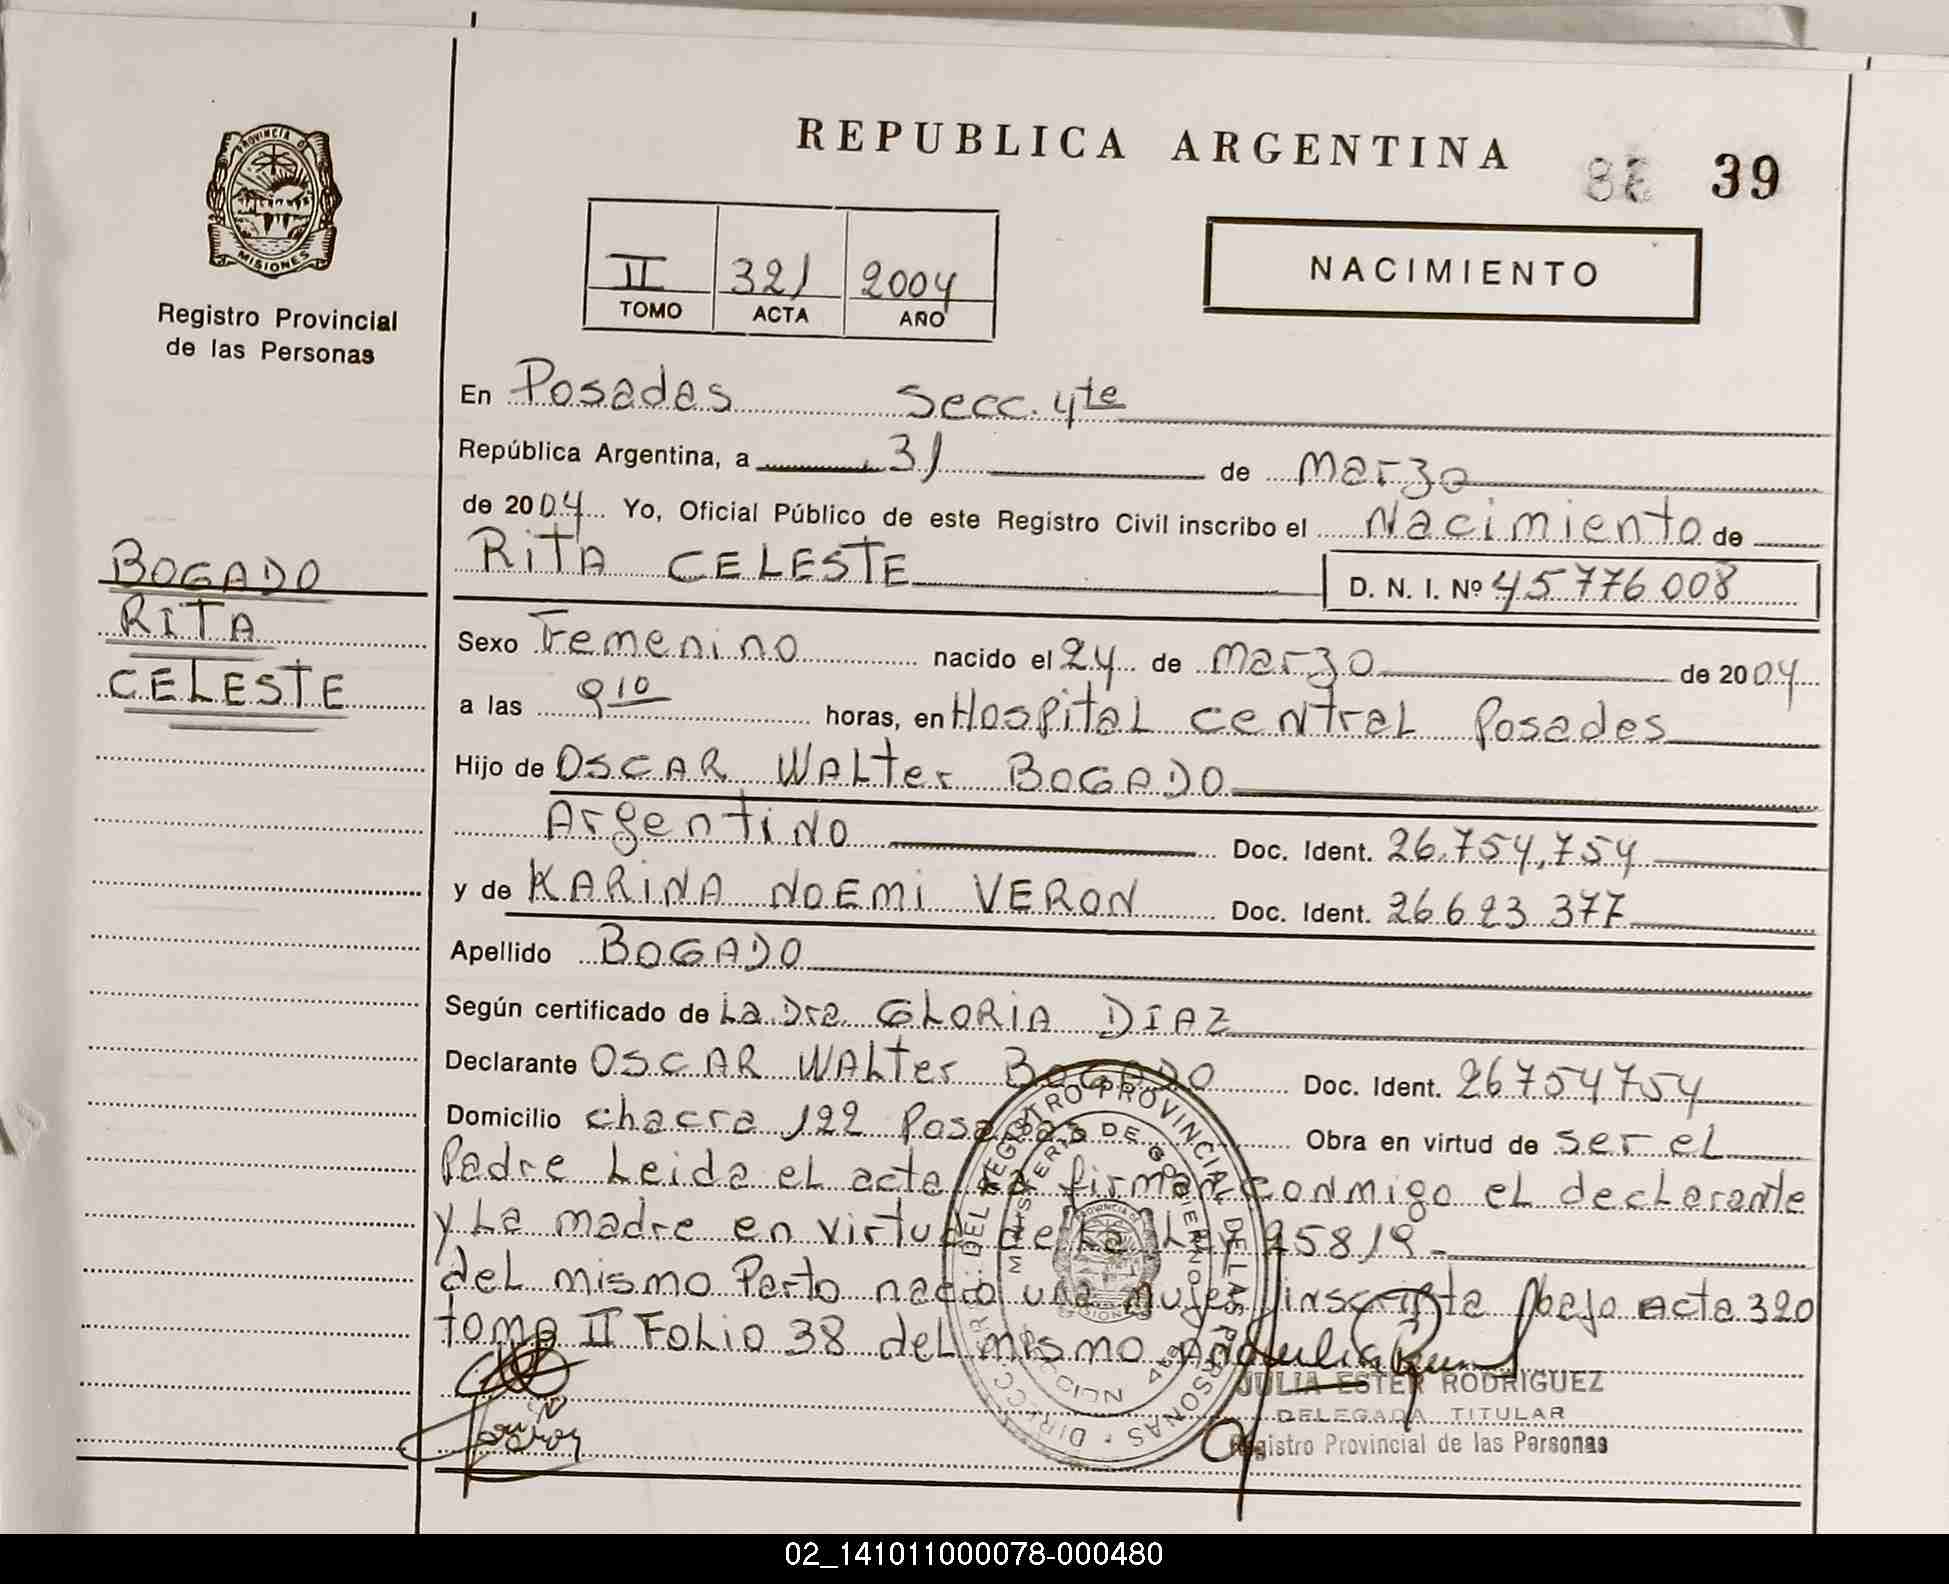 REPUBLICA ARGENTINA
39
PROVINCIA DE
MISIONES
Registro Provincial
de las Personas
II 321 2004
TOMO ACTA AÑO
NACIMIENTO
En Posadas Secc. 4ta
República Argentina, a 31 de Marzo
de 2004 Yo, Oficial Público de este Registro Civil inscribo el Nacimiento de
RITA CELESTE D. N. I. Nº 45776008
BOGADO
RITA
CELESTE
Sexo Femenino nacido el 24 de Marzo de 2004
a las 9 10 horas, en Hospital Central Posadas
Hijo de OSCAR WALTER BOGADO
Argentino Doc. Ident. 26.754.754
y de KARINA NOEMI VERON Doc. Ident. 26623377
Apellido BOGADO
Según certificado de La Dra GLORIA DIAZ
Declarante OSCAR WALTER BOGADO Doc. Ident. 26754754
Domicilio Chacra 122 Posadas Obra en virtud de ser el
Padre Leida el acta la firman conmigo el declarante
y la madre en virtud de la Ley 25819-
del mismo Parto nació una mujer inscripta bajo Acta 320
tomo II Folio 38 del mismo Año
JULIA ESTER RODRIGUEZ
DELEGADA TITULAR
Registro Provincial de las Personas
DEL REGISTRO PROVINCIAL DE LAS PERSONAS
MINISTERIO DE GOBIERNO
02_141011000078-000480